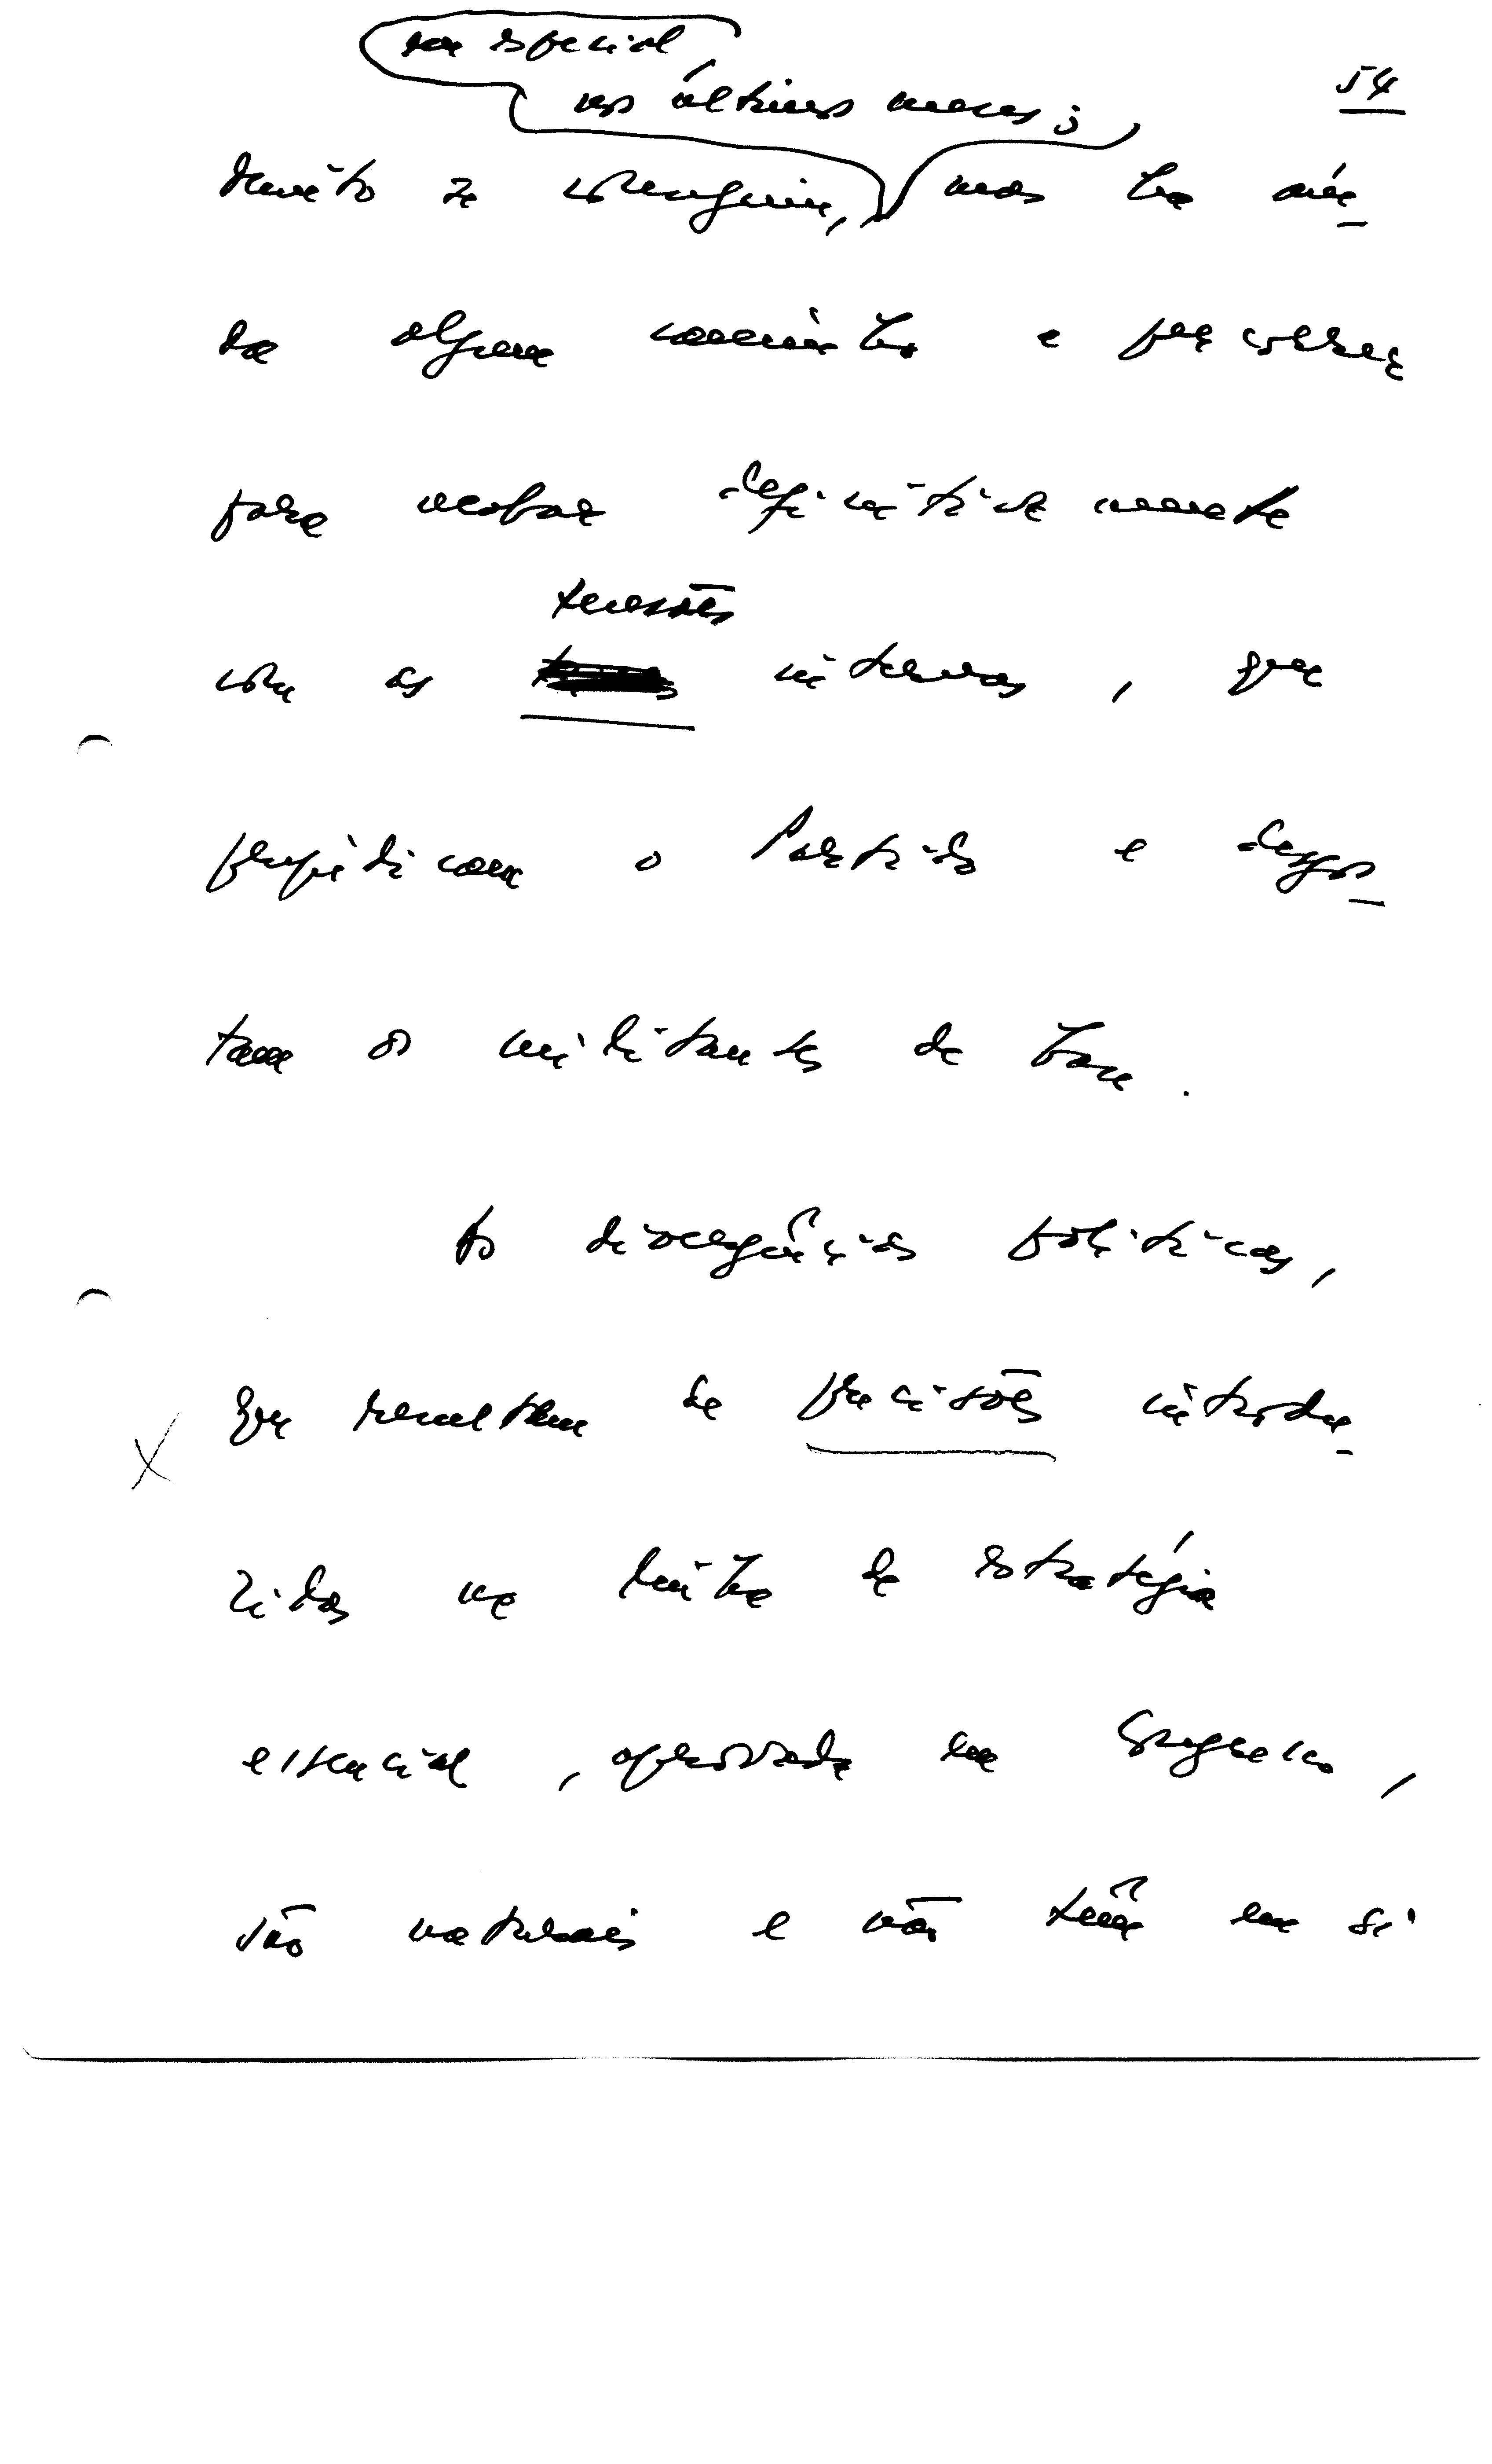 em especial,
nos últimos meses;
54
Muito se conseguiu, mas há ain-
da algum caminho a percorrer
para acabar definitivamente
tensões
com as internas, que
prejudicam o Partido e desgos-
tam os militantes de base.
As divergências políticas,
que resultem de precisões introdu-
zidas na linha de estratégia
essencial, aprovada em Congresso,
são naturais e não têm em si